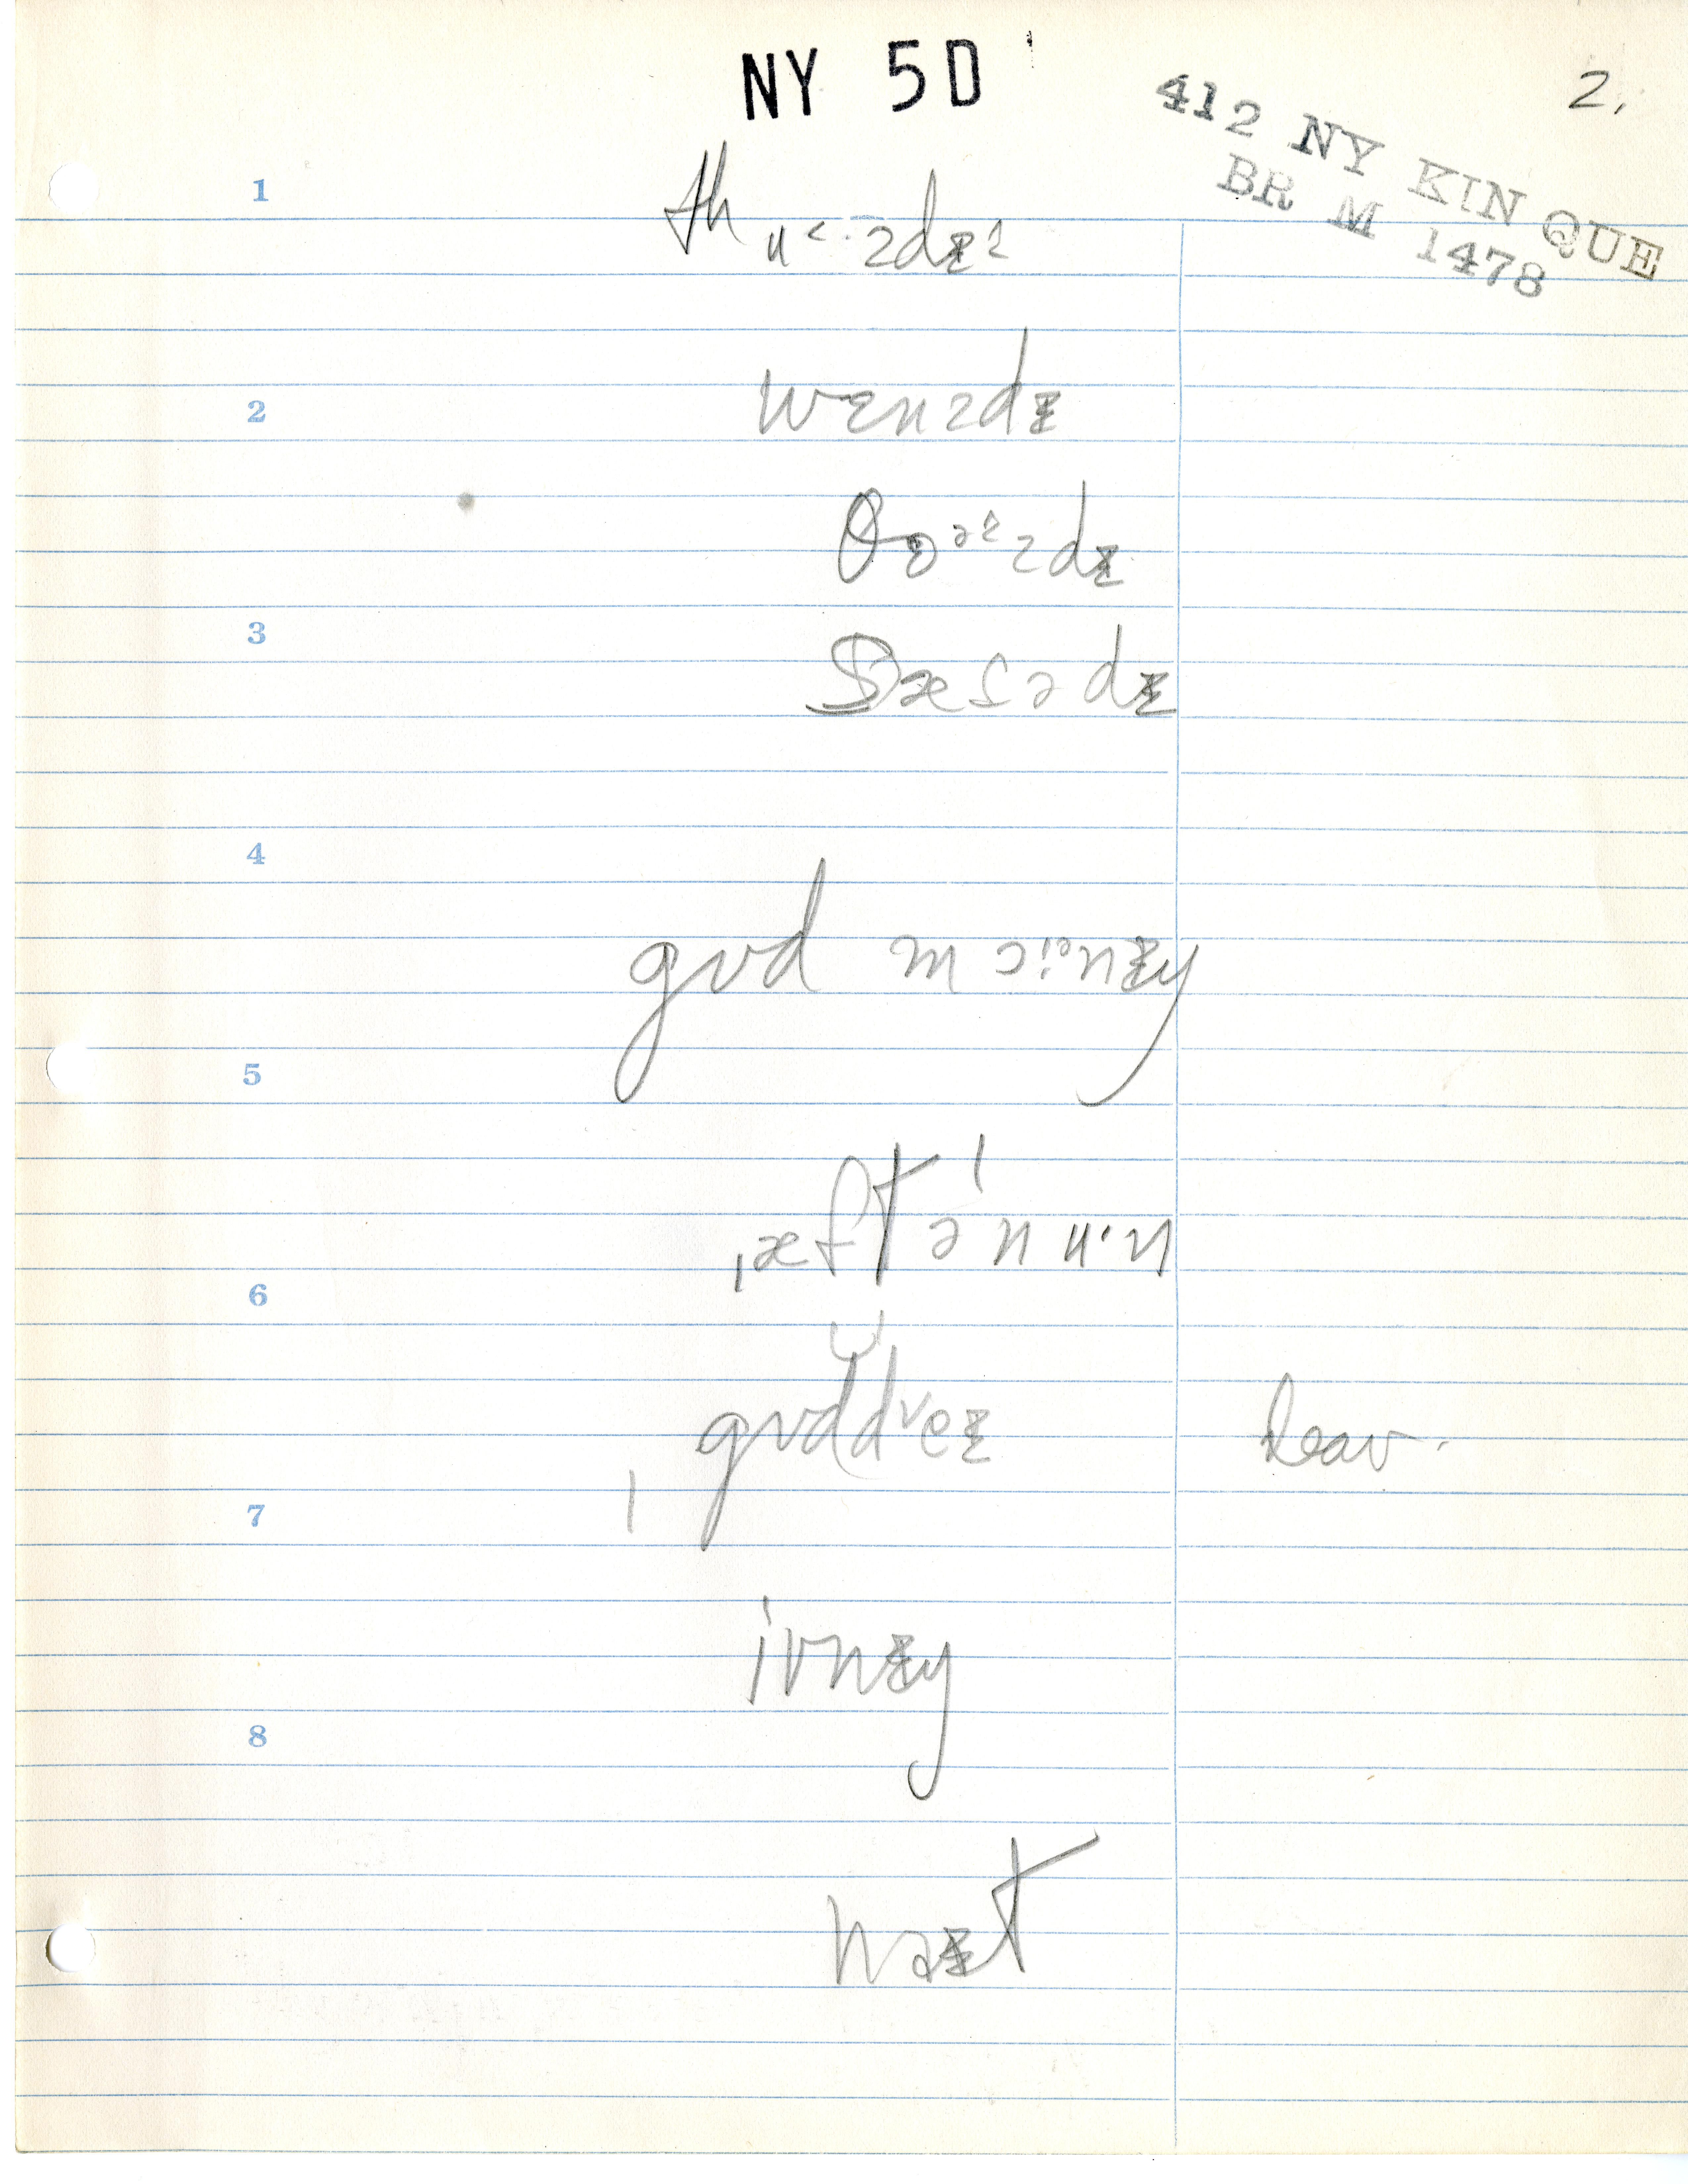 NY 5D
2.
412 NY KIN QUE
BR M 1478
1
thu˂·zdɪ˂
2
wɛnzdɪ
θɜᵊ˂zdɪ
3
sætədɪ
4
gʊd mɔ·ᵊnɪŋ
5
ˌæftəˈnu·n
6
ˌgʊddᵛeɪ
leav.
7
ivnɪŋ
8
naɪt